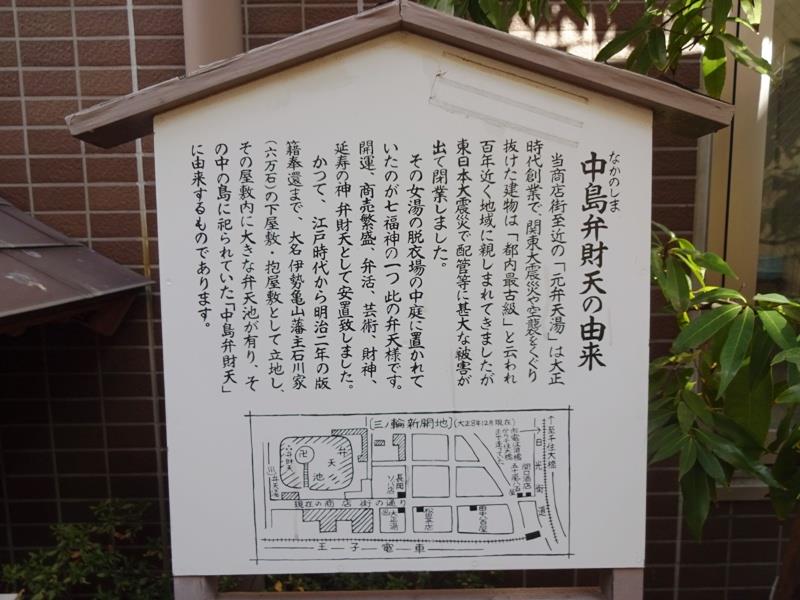 なかのしま
中島弁財天の由来
当商店街至近の「元弁天湯」は大正
時代創業で、関東大震災や空襲をくぐり
抜けた建物は、「都内最古級」と云われ
百年近く地域に親しまれてきましたが
東日本大震災で配管等に甚大な被害が
出て閉業しました。
その女湯の脱衣場の中庭に置かれて
いたのが七福神の一つ此の弁天様です。
開運、商売繁盛、弁活、芸術、財神、
延寿の神 弁財天として安置致しました。
かつて、江戸時代から明治二年の版
籍奉還まで、大名 伊勢亀山藩主石川家
(六万石)の下屋敷・抱屋敷として立地し、
その屋敷内に大きな弁天池が有り、そ
の中の島に祀られていた「中島弁財天」
に由来するものであります。
[三ノ輪新開地](大正8年12月現在)
↑至千住大橋
日光街道
市電は須橋
から千住大橋
まで通っていた
関口酒店
五十嵐八百屋
弁天池
卍
弁財天
弁天湯
長岡ソバ店
現在の商店街の通り
大正湯
松田本店
田中八百屋
王子電車